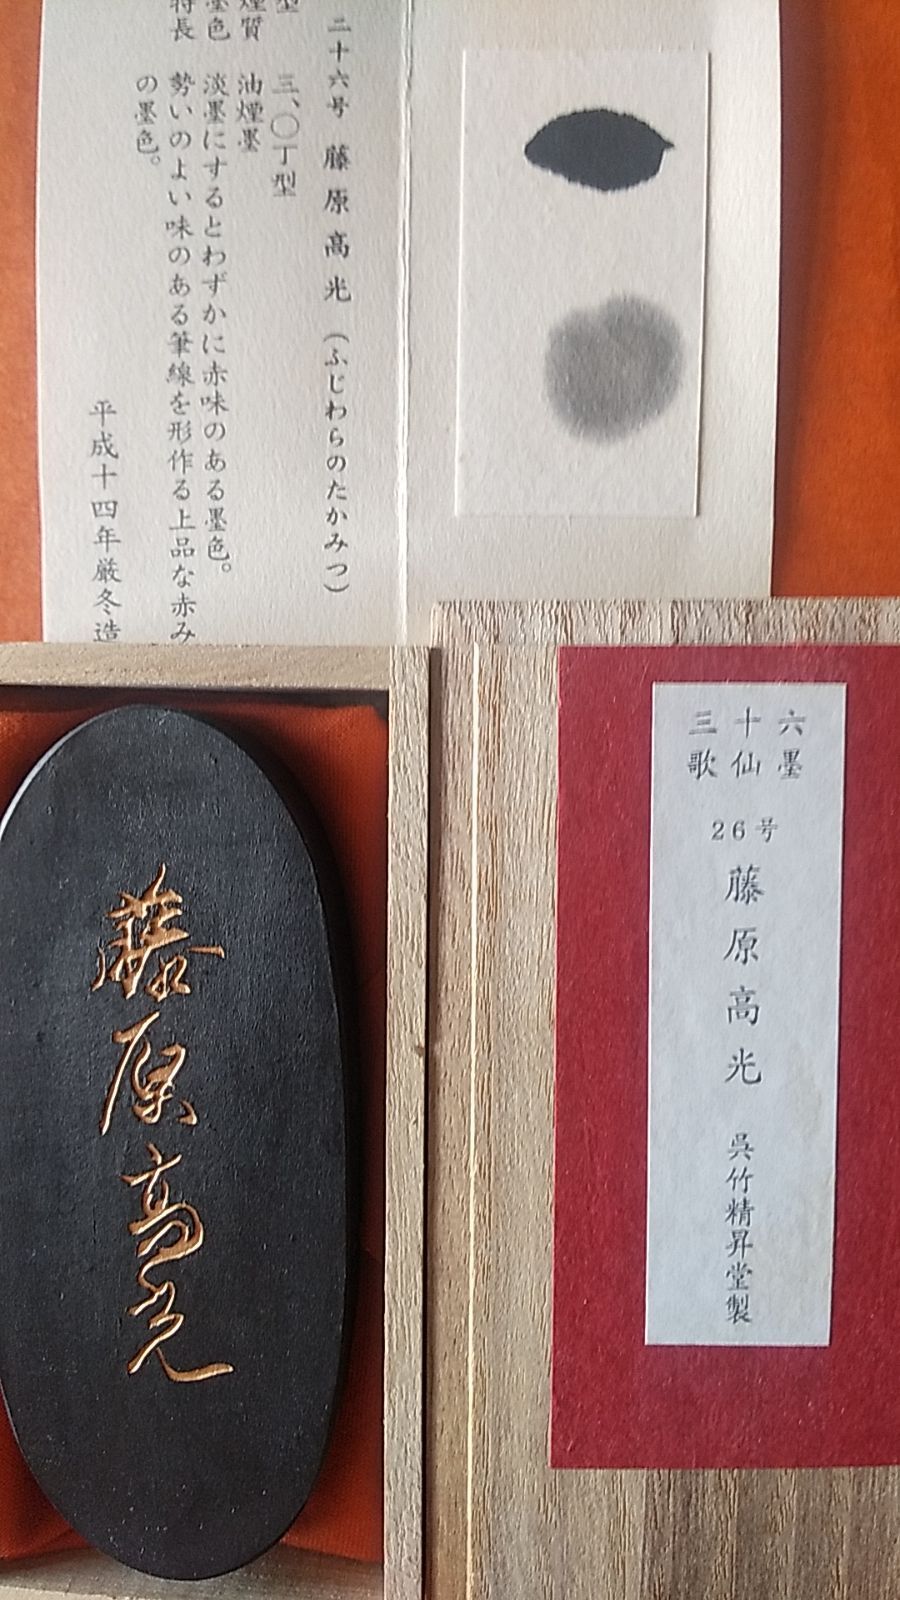 二十六号 藤原高光 (ふじわらのたかみつ)
型 三、〇丁型
煙質 油煙墨
墨色 淡墨にするとわずかに赤味のある墨色。
特長 勢いのよい味のある筆線を形作る上品な赤み
の墨色。
平成十四年厳冬造
藤原高光
三十六
歌仙墨
26号
藤原高光
呉竹精昇堂製